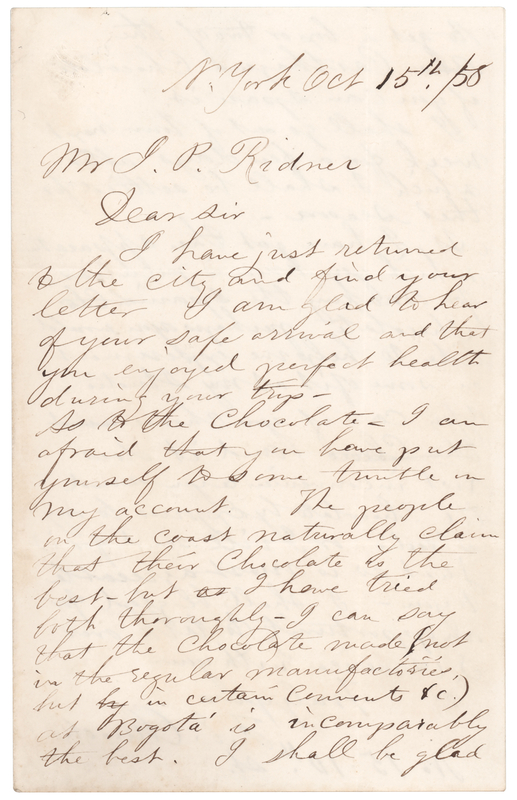 N. York Oct 15th./58
Mr J. P. Ridner
Dear sir
I have just returned
to the city and find your
letter I am glad to hear
of your safe arrival and that
you enjoyed perfect health
during your trip-
As to the Chocolate - I am
afraid that you have put
yourself to some trouble on
my account. The people
on the coast naturally claim
that their Chocolate is the
best - but as I have tried
both thoroughly - I can say
that the Chocolate made (not
in the regular manufactories,
but by in certain Convents &c.)
at Bogotá is incomparably
the best. I shall be glad